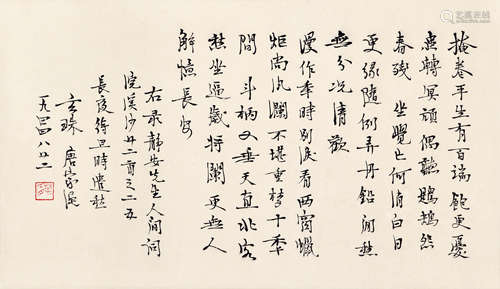 掩卷平生有百端飽更憂
患轉冥頑偶聽鶗鴂怨
春殘 坐覺亡何消白日
更緣隨例弄丹鉛閒愁
無分況清歡
漫作年時別淚看西窗蠟
炬尚汍瀾不堪重夢十年
間 斗柄又垂天直北客
愁坐逼歲將闌更無人
解憶長安
右录静安先生人间词
浣溪沙廿二首之二五
長夜待旦時遣愁
玄珠 唐家
一九四四 八 廿二